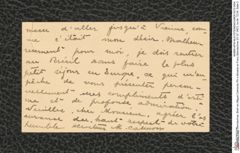 messe d'aller jusqu'à Vienne com-
me c'était mon désir. Malheu-
reusement pour moi, je dois rentrer
au Brésil sans faire le plus
petit séjour en Europe, ce qui m'em-
pêche de vous présenter person-
nellement mes compliments d'esti-
me et de profonde admiration.
Veuillez, cher Monsieur, agréer l'as-
surance des haut respect de votre
humble serviteur M.